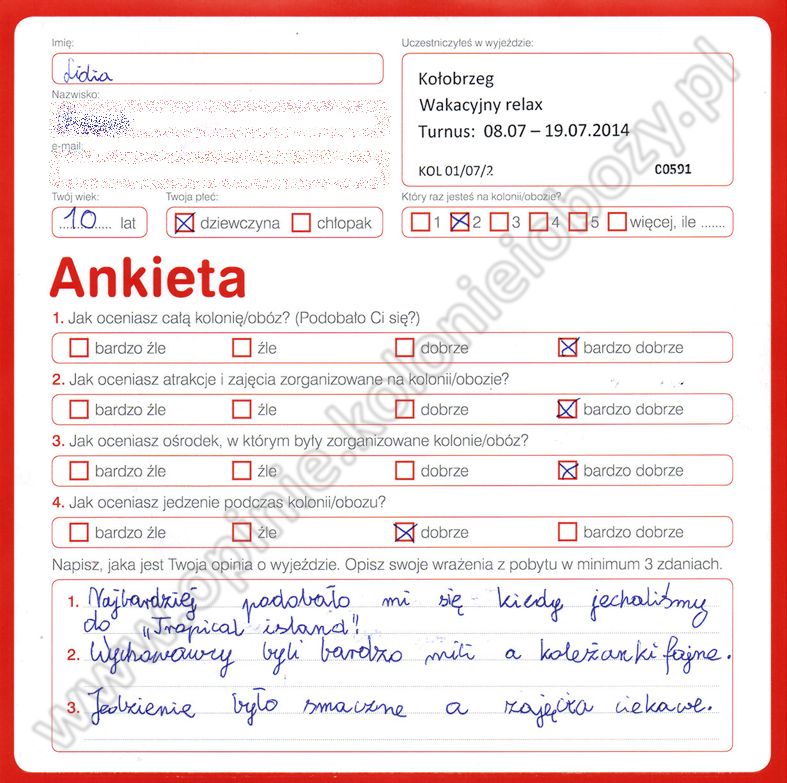 Imię:
Lidia
Nazwisko:
e-mail:
Twój wiek:
10 lat
Twoja płeć:
dziewczyna chłopak
Uczestniczyłeś w wyjeździe:
Kołobrzeg
Wakacyjny relax
Turnus: 08.07 – 19.07.2014
KOL 01/07/2 C0591
Który raz jesteś na kolonii/obozie?
1 2 3 4 5 więcej, ile .......
Ankieta
1. Jak oceniasz całą kolonię/obóz? (Podobało Ci się?)
bardzo źle źle dobrze bardzo dobrze
2. Jak oceniasz atrakcje i zajęcia zorganizowane na kolonii/obozie?
bardzo źle źle dobrze bardzo dobrze
3. Jak oceniasz ośrodek, w którym były zorganizowane kolonie/obóz?
bardzo źle źle dobrze bardzo dobrze
4. Jak oceniasz jedzenie podczas kolonii/obozu?
bardzo źle źle dobrze bardzo dobrze
Napisz, jaka jest Twoja opinia o wyjeździe. Opisz swoje wrażenia z pobytu w minimum 3 zdaniach.
1. Najbardziej podobało mi się kiedy jechaliśmy
do „Tropical island"!
2. Wychowawcy byli bardzo mili a koleżanki fajne.
3. Jedzienie było smaczne a zajęcia ciekawe.
www.opinie.kolonieiobozy.pl